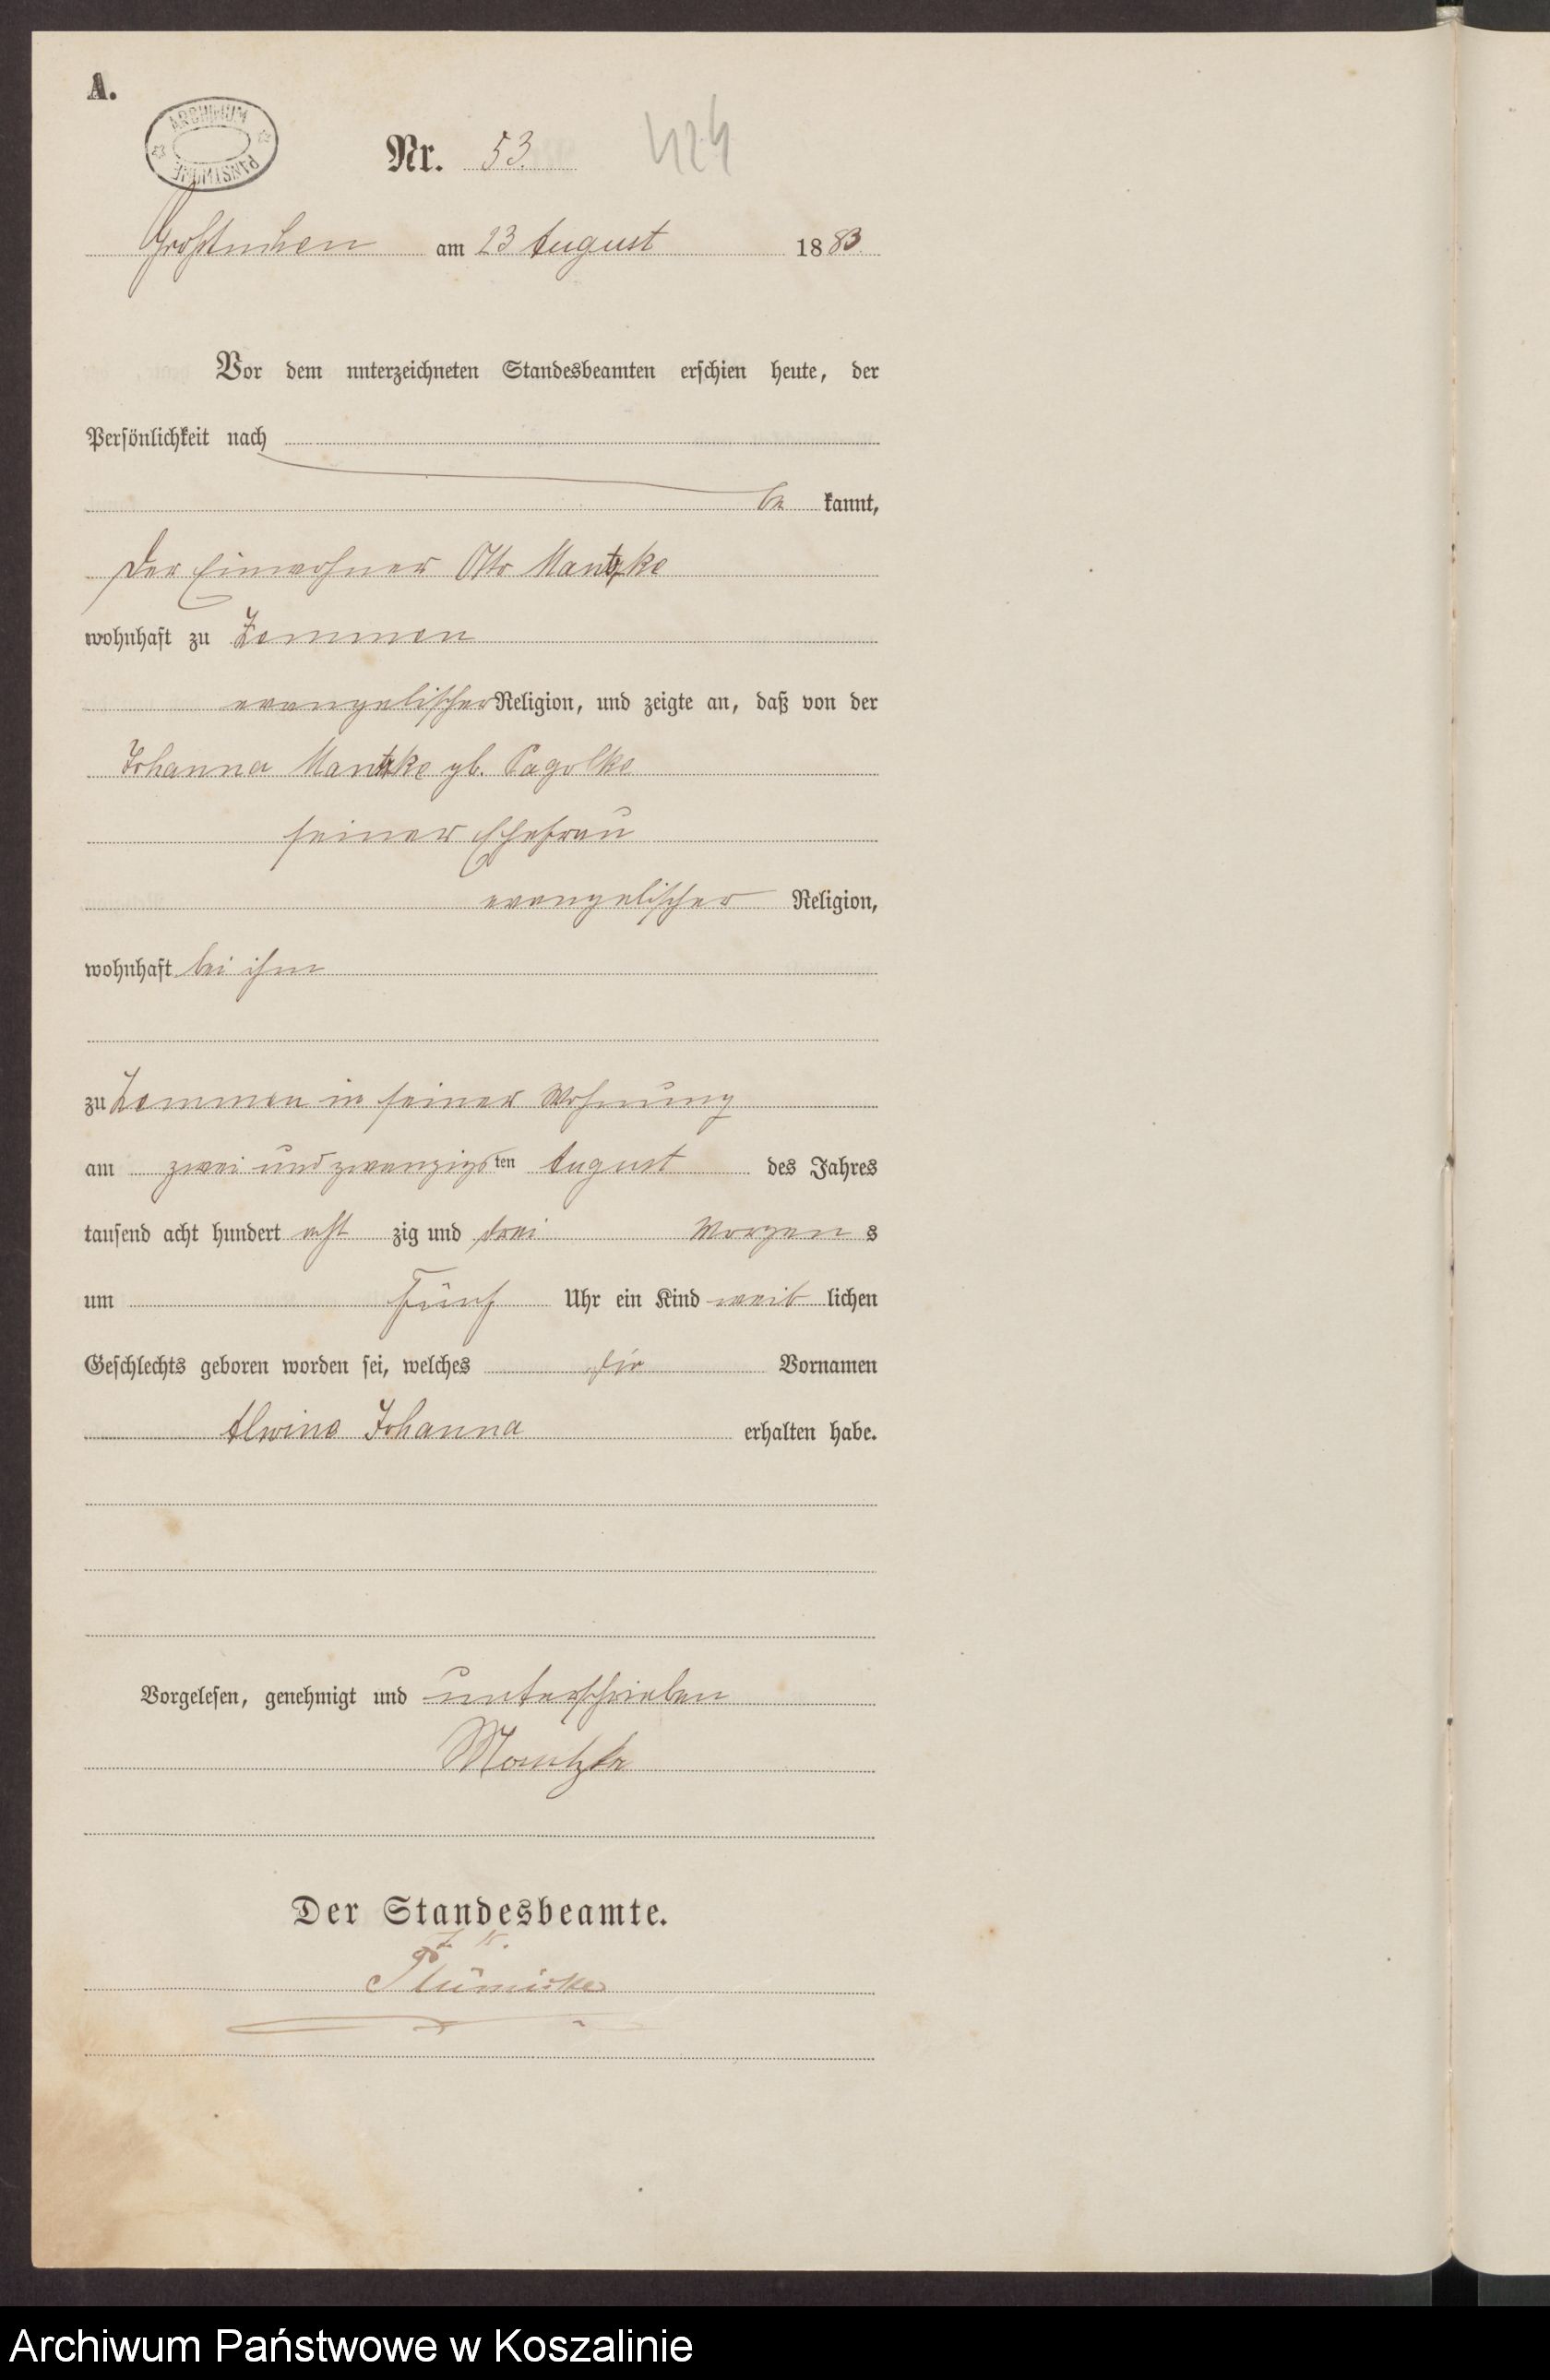 A.
ARCHIWUM
PAŃSTWOWE
Nr. 53.
424
Großtuchen am 23 August 1883
Vor dem unterzeichneten Standesbeamten erschien heute, der
Persönlichkeit nach
be kannt,
der Einwohner Otto Mantzke
wohnhaft zu Zemmen
evangelischer Religion, und zeigte an, daß von der
Johanna Mantzke gb. Pagolke
seiner Ehefrau
evangelischer Religion,
wohnhaft bei ihm
zu Zemmen in seiner Wohnung
am zwei und zwanzigsten August des Jahres
tausend acht hundert acht zig und drei Morgen s
um fünf Uhr ein Kind weib lichen
Geschlechts geboren worden sei, welches die Vornamen
Alwine Johanna erhalten habe.
Vorgelesen, genehmigt und unterschrieben
Mantzke
Der Standesbeamte.
Plümicke
Archiwum Państwowe w Koszalinie